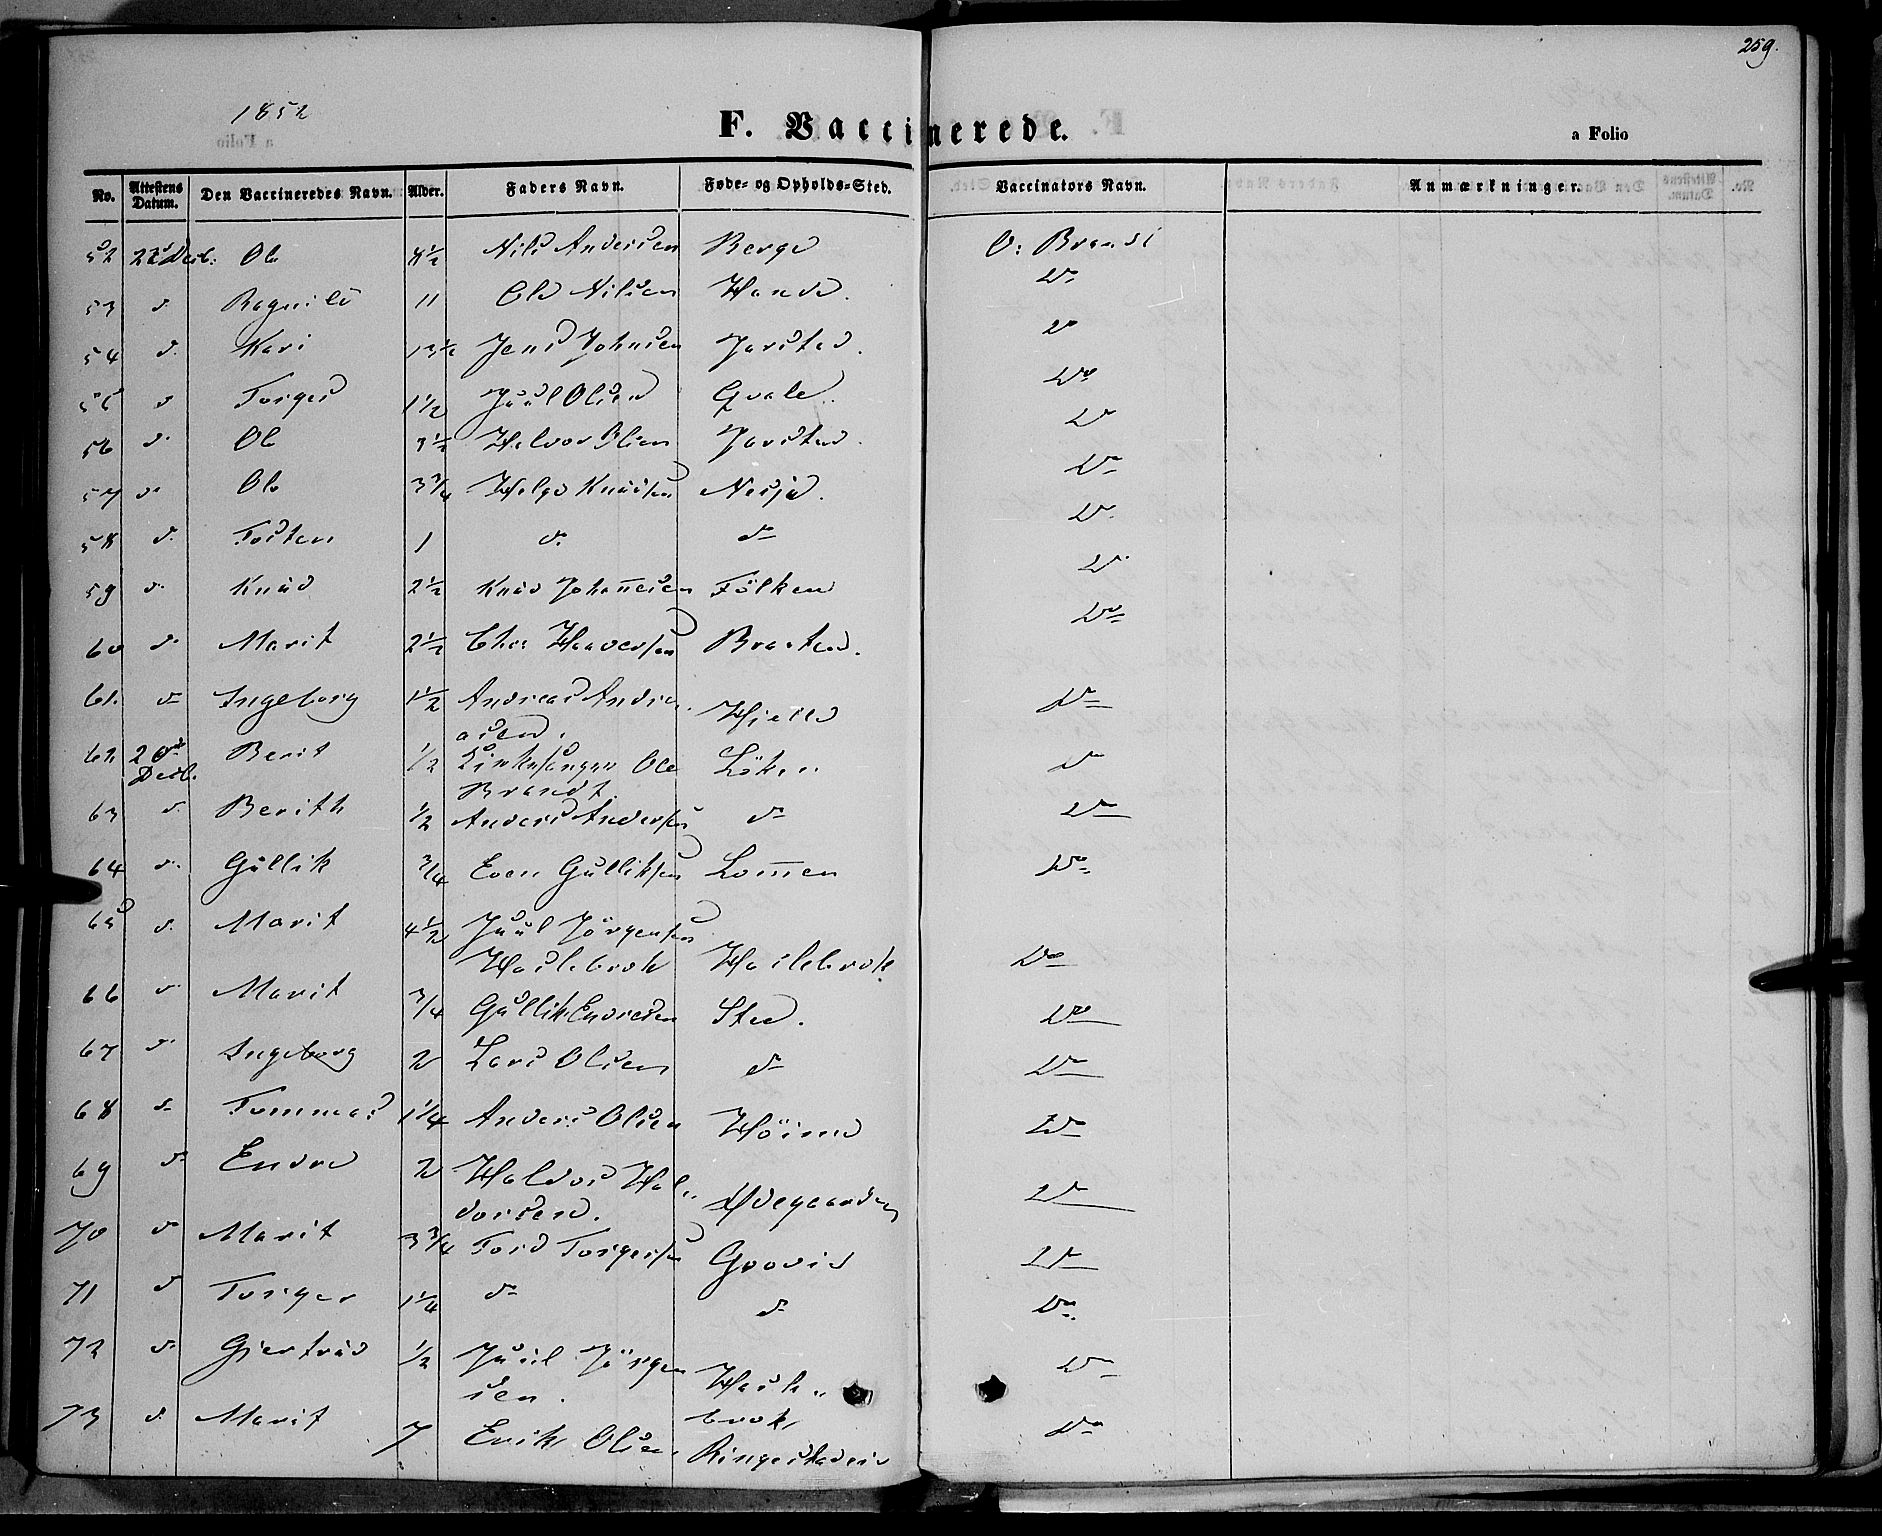 259.
1852
F. Vaccinerede.
a Folio
No. Attestens Datum. Den Vaccineredes Navn. Alder. Faders Navn. Føde- og Opholds-Sted. Vaccinators Navn. Anmærkninger.
52 22 Decb: Ole 8½ Nils Andersen Berge O: Brandt
53 d. Ragnild 11 Ole Nilsen Hande. Do
54 d. Kari 13½ Jens Johnsen Jarstad. Do
55 d Torger 1½ Juul Olsen Qvale. Do
56 d. Ole 3½ Halvor Olsen Jarstad. Do
57 do Ole 3¾ Helge Knudsen Nesja. Do
58 d. Tosten 1 do do Do
59 d. Knud 2½ Knud Johannesen Fölken Do
60 d. Marit 2½ Haaversen Braaten. Do
61. do Ingeborg 1½ Andreas Andre-
asen. Hjelle Do
62 20de Decb. Berit ½ Kirkesanger Ole
Brandt Löken Do
63 d. Berith ½ Anders Andersen do Do
64 d. Gullik ¾ Even Gulliksen Lomen Do
65 d. Marit 4½ Juul Jörgensen
Haslebrok Haslebrok Do
66 d. Marit ¾ Gullik Endresen Sted. Do
67 d. Ingeborg 2 Lars Olsen do Do
68 do Tommas 1¼ Anders Olsen Höime Do
69 do Endre 2 Haldor Hal-
dorsen. Ødegaarden Do
70 do Marit 3¾ Tord Torgersen Do
71 d. Torger 1¼ do do Do
72 d. Giertrud ½ Juul Jörgen
sen. Hasle-
brok Do
73 d. Marit 7 Erik Olsen Ringestadeie Do